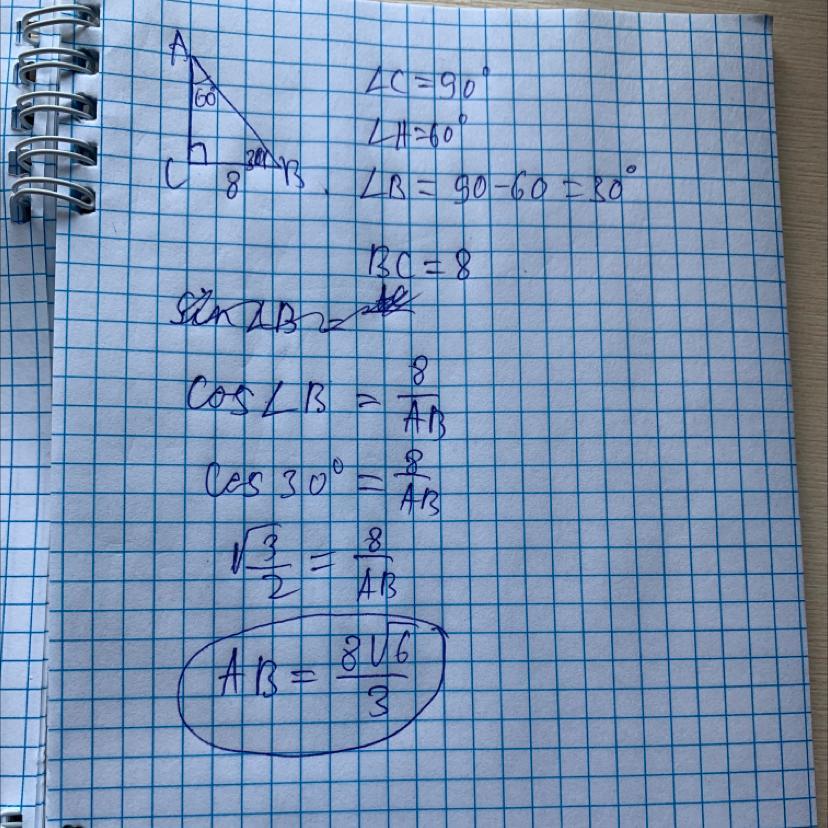 A
60°
C
8
30°
B
∠C = 90°
∠A = 60°
∠B = 90 - 60 = 30°
BC = 8
sin∠B =
cos∠B = 8/AB
cos 30° = 8/AB
√3/2 = 8/AB
AB = 8√6/3